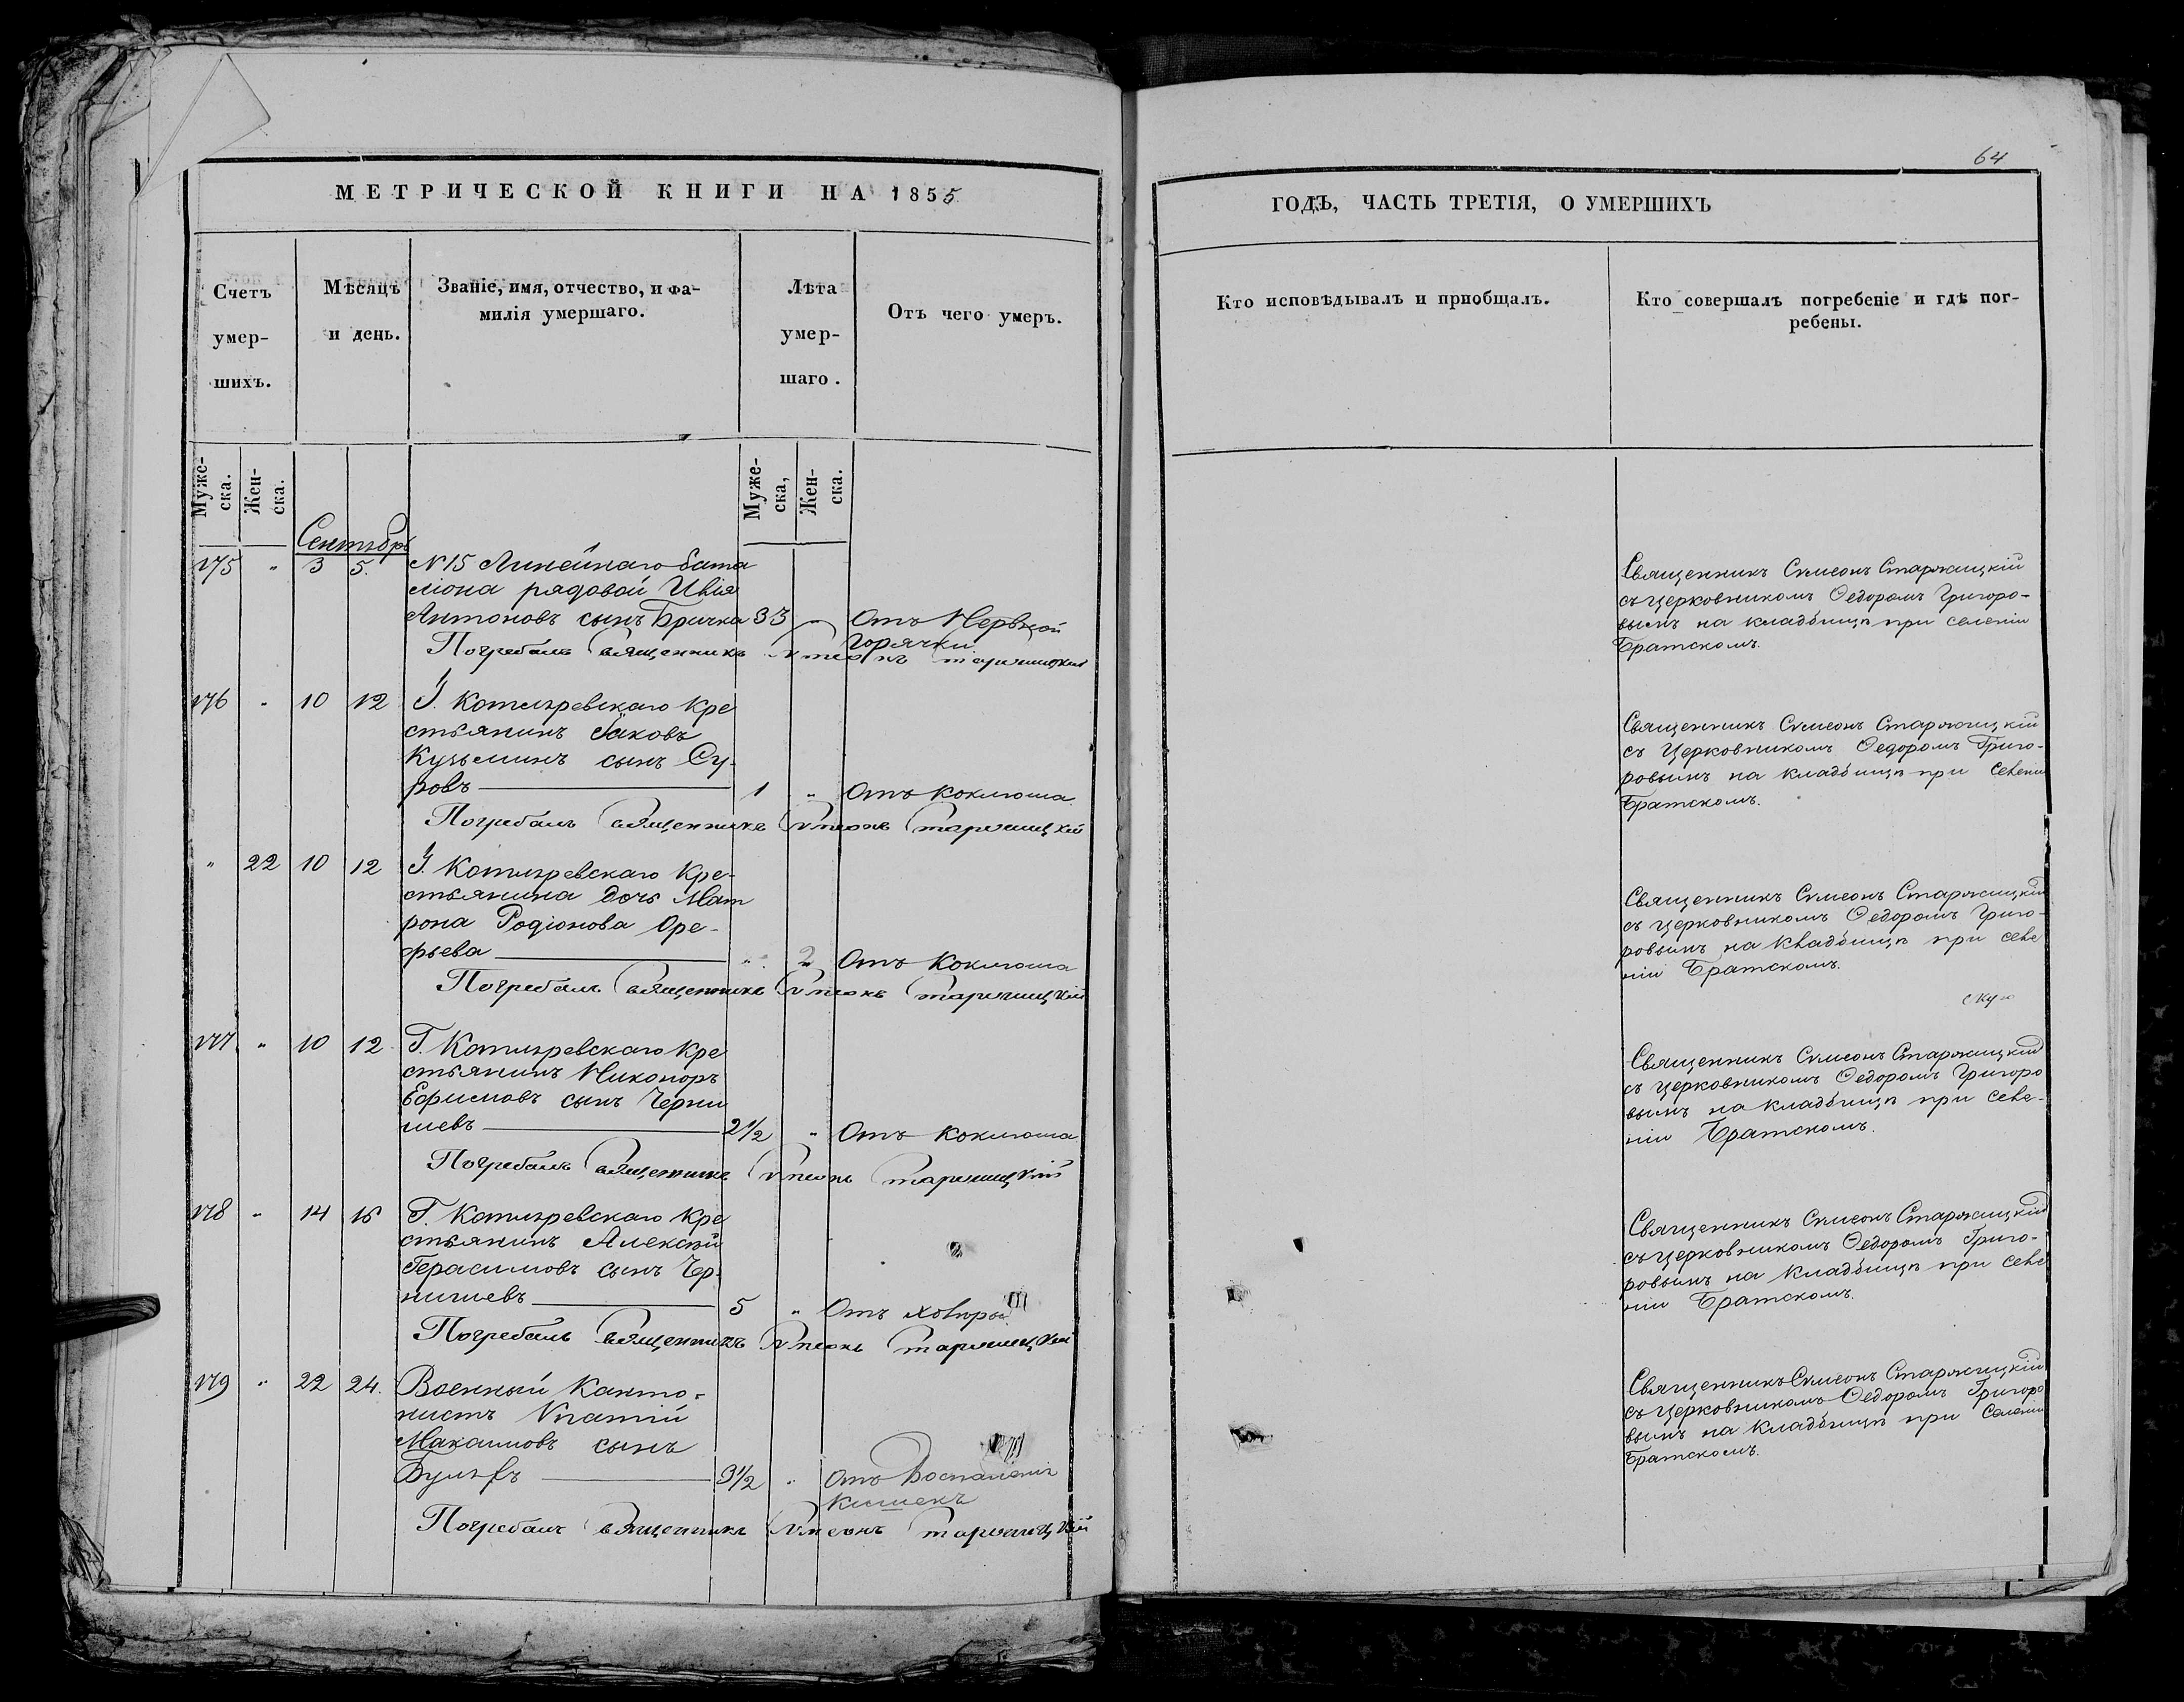 64
МЕТРИЧЕСКОЙ КНИГИ НА 1855
ГОДѢ, ЧАСТЬ ТРЕТІЯ, О УМЕРШИХЪ
Счетъ умер-шихъ.
Мѣсяцъ и день.
Званіе, имя, отчество, и фа-
милія умершаго.
Лѣта умер-шаго.
Отъ чего умеръ.
Кто исповѣдывалъ и пріобщалъ.
Кто совершалъ погребеніе и гдѣ пог-
ребены.
Муже-ска. Жен-ска.
Муже-ска, Жен-ска.
Сентябрь
175 " 3 5. №15 Линейнаго бата
ліона рядовой
Антоновъ сынъ Бричка 33 " Отъ Нервной
горячки
Погребалъ Священникъ Симеонъ Старжицкій
Священникъ Симеонъ Старжицкій
съ церковникомъ Ѳедоромъ Григоро-
вымъ на кладбищѣ при селеніи
Братскомъ.
176 " 10 12 Г. Котляревскаго Кре
стьянинъ Іаковъ
Кузьминъ сынъ Су-
ровъ 1 " Отъ Коклюша
Погребалъ Священникъ Симеонъ Старжицкій
Священникъ Симеонъ Старжицкій
съ Церковникомъ Ѳедоромъ Григо-
ровымъ на кладбищѣ при селеніи
Братскомъ.
" 22 10 12 Г. Котляревскаго Кре-
стьянина дочь Мат
рона Родіонова Оре-
фьева " 2 Отъ Коклюша
Погребалъ Священникъ Симеонъ Старжицкій
Священникъ Симеонъ Старжицкій
съ церковникомъ Ѳедоромъ Григо-
ровымъ на кладбищѣ при селе
ніи Братскомъ.
177 " 10 12 Г. Котляревскаго Кре
стьянинъ Никоноръ
Ефимовъ сынъ Черни
шевъ 2½ " Отъ Коклюша
Погребалъ Священникъ Симеонъ Старжицкій
Священникъ Симеонъ Старжицкій
съ церковникомъ Ѳедоромъ Григоро
вымъ на кладбищѣ при селе-
ніи Братскомъ.
178 " 14 16 Г. Котляревскаго Кре
стьянинъ Алексѣй
Герасимовъ сынъ Чер-
нишевъ 5 " Отъ
Погребалъ Священникъ Симеонъ Старжицкій
Священникъ Симеонъ Старжицкій
съ церковникомъ Ѳедоромъ Григо-
ровымъ на кладбищѣ при селе
ніи Братскомъ.
179 " 22 24. Военный Канто-
нистъ Ипатій
Максимовъ сынъ
3½ " Отъ Воспаленія
Кишекъ
Погребалъ Священникъ Симеонъ Старжицкій
Священникъ Симеонъ Старжицкій
съ церковникомъ Ѳедоромъ Григоро
вымъ на кладбищѣ при Селеніи
Братскомъ.